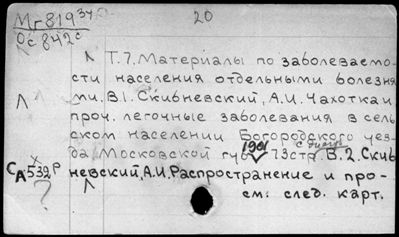 Мг-819 37с. 20
Ос 842с
Т.7. Материалы по заболеваемо-
сти населения отдельными болезня
ми. В1. Скибневский, А.И. Чахотка и
проч. легочные заболевания в сель
ском населении Богородского уез-
да Московской губ. 1901 73стр. В.2. Скиб
СА 532р невский, А.И. Распространение и про-
?
см. след. карт.